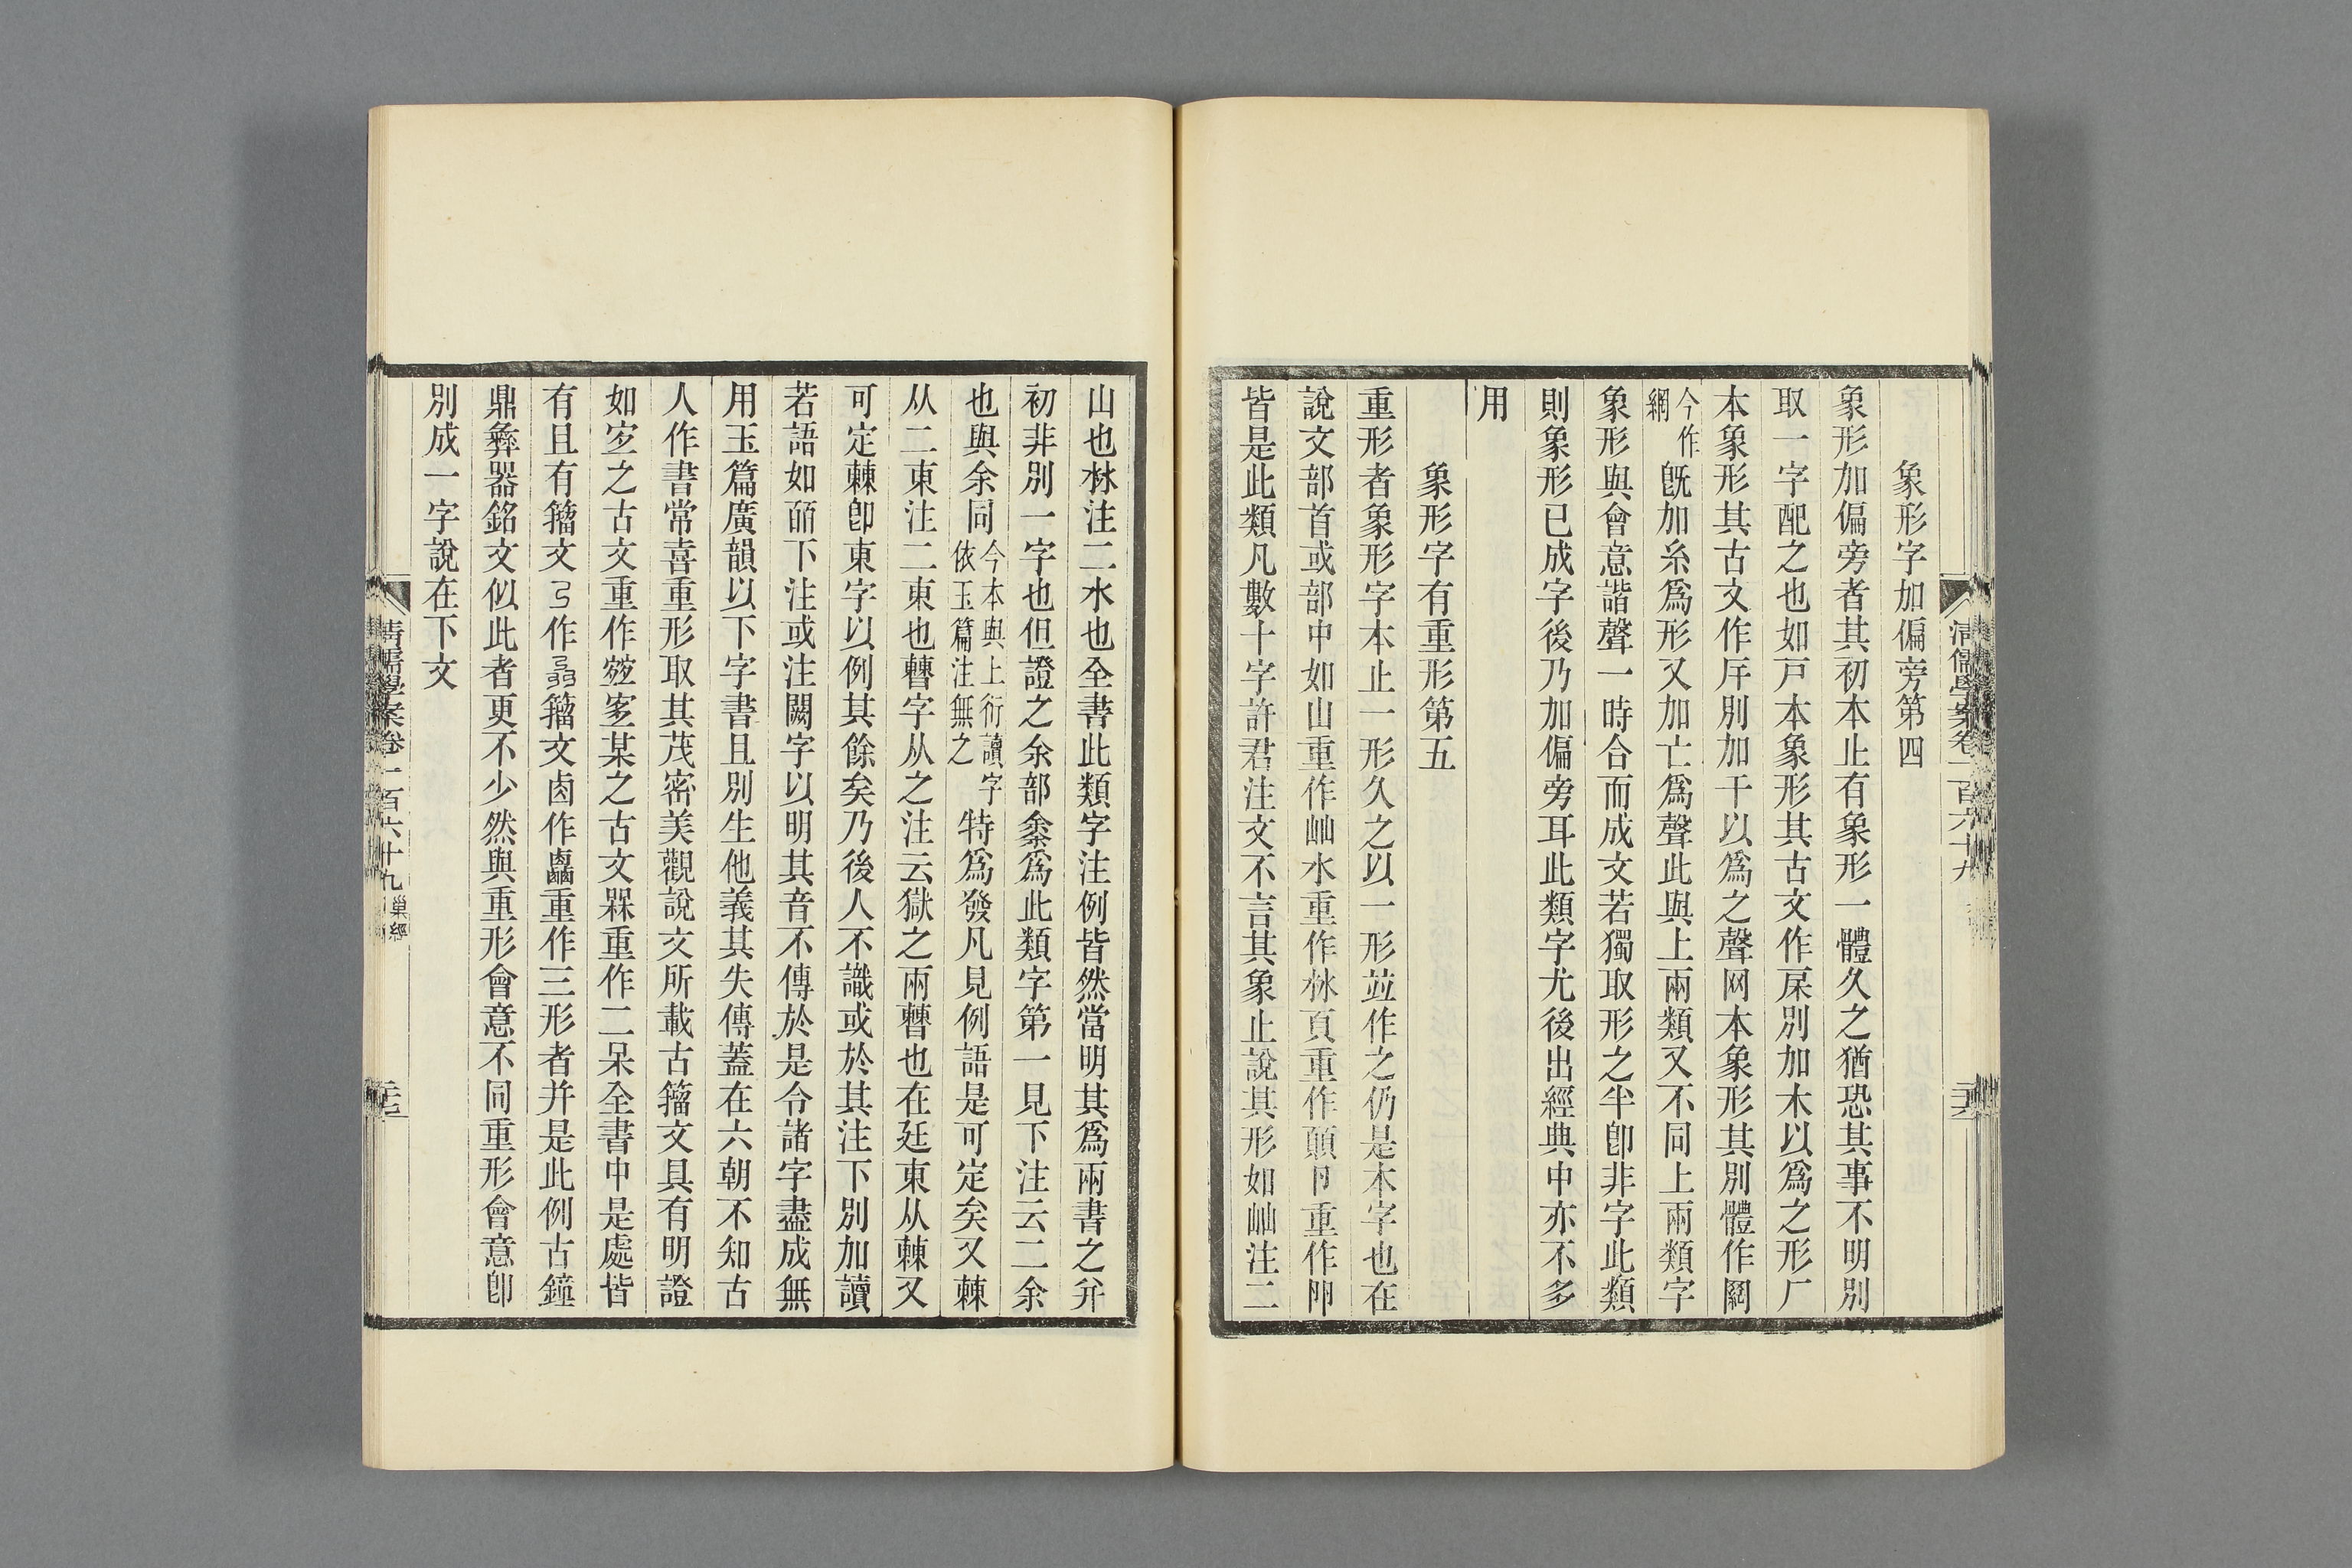 象形字加偏旁第四
象形加偏旁者其初本止有象形一體久之猶恐其事不明別
取一字配之也如戸本象形其古文作𢨤別加木以爲之形厂
本象形其古文作厈別加干以爲之聲网本象形其別體作𦉾
今作
網
旣加糸爲形又加亡爲聲此與上兩類又不同上兩類字
象形與會意諧聲一時合而成文若獨取形之半卽非字此類
則象形已成字後乃加偏旁耳此類字尤後出經典中亦不多
用
象形字有重形第五
重形者象形字本止一形久之以一形竝作之仍是本字也在
說文部首或部中如山重作屾水重作沝頁重作顛卩重作卯
皆是此類凡數十字許君注文不言其象止說其形如屾注二
清儒學案卷一百六十九
二十六
山也沝注二水也全書此類字注例皆然當明其爲兩書之幷
初非別一字也但證之余部𠎳爲此類字第一見下注云二余
也與余同
今本與上衍讀字
依玉篇注無之
特爲發凡見例語是可定矣又㯥
从二東注二東也㯥字从之注云獄之兩曹也在廷東从㯥又
可定㯥卽東字以例其餘矣乃後人不識或於其注下別加讀
若語如皕下注或注闕字以明其音不傳於是令諸字盡成無
用玉篇廣韻以下字書且別生他義其失傳蓋在六朝不知古
人作書常喜重形取其茂密美觀說文所載古籀文具有明證
如宐之古文重作𡪀㝖某之古文槑重作二呆全書中是處皆
有且有籀文𠄎作𠄕籀文卤作𠧪重作三形者并是此例古鐘
鼎彝器銘文似此者更不少然與重形會意不同重形會意卽
別成一字說在下文
清儒學案卷一百六十九 巢經
二十七